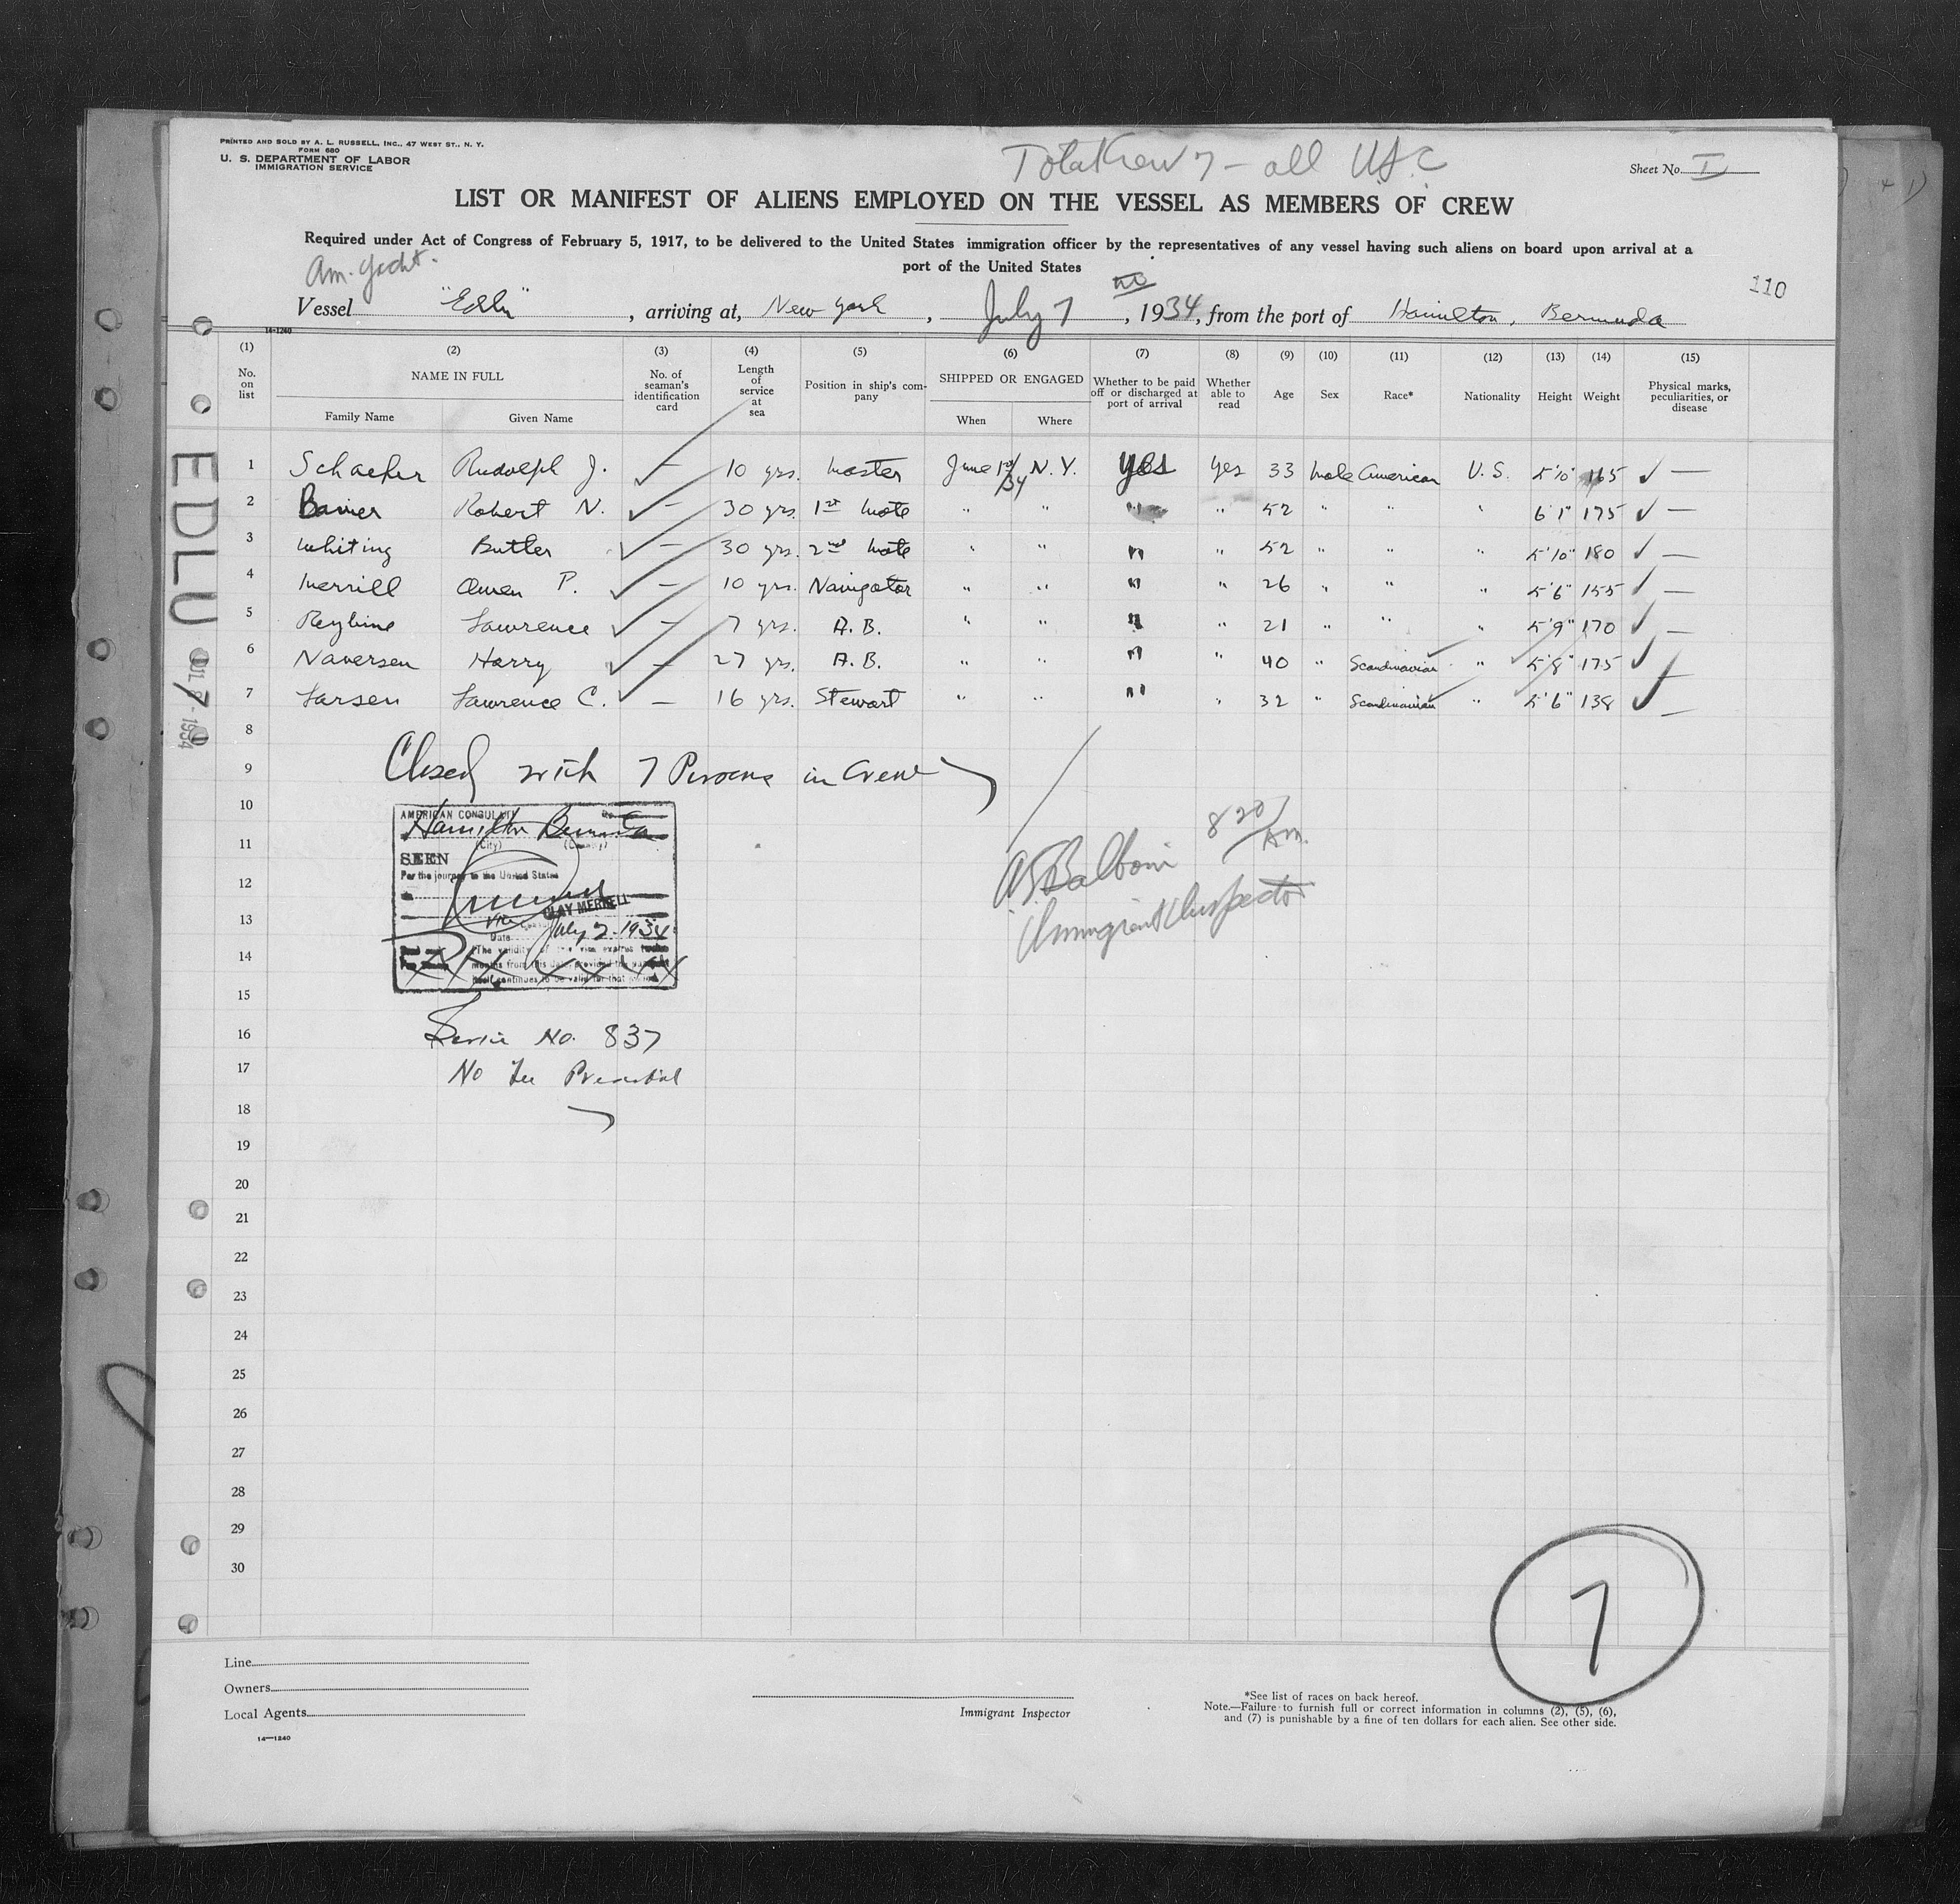 PRINTED AND SOLD BY A. L. RUSSELL, INC., 47 WEST ST., N. Y.
FORM 680
U. S. DEPARTMENT OF LABOR
IMMIGRATION SERVICE
Total Crew 7 - all U.S.C
Sheet No. I
LIST OR MANIFEST OF ALIENS EMPLOYED ON THE VESSEL AS MEMBERS OF CREW
Required under Act of Congress of February 5, 1917, to be delivered to the United States immigration officer by the representatives of any vessel having such aliens on board upon arrival at a
port of the United States
Am. Yacht.
110
Vessel "Edlu", arriving at, New York, July 7, 1934, from the port of Hamilton, Bermuda
14-1240
(1) (2) (3) (4) (5) (6) (7) (8) (9) (10) (11) (12) (13) (14) (15)
No. on list NAME IN FULL Family Name Given Name No. of seaman's identification card Length of service at sea Position in ship's company SHIPPED OR ENGAGED When Where Whether to be paid off or discharged at port of arrival Whether able to read Age Sex Race* Nationality Height Weight Physical marks, peculiarities, or disease
1 Schaefer Rudolph J. ✓ — 10 yrs. Master June 1st/34 N.Y. Yes Yes 33 Male American U.S. 5'10" 165 ✓ —
2 Bavier Robert N. ✓ — 30 yrs. 1st Mate " " " " 52 " " " 6'1" 175 ✓ —
3 Whiting Butler ✓ — 30 yrs. 2nd Mate " " " " 52 " " " 5'10" 180 ✓ —
4 Merrill Owen P. ✓ — 10 yrs. Navigator " " " " 26 " " " 5'6" 155 ✓ —
5 Reybine Lawrence ✓ — 7 yrs. A.B. " " " " 21 " " " 5'9" 170 ✓ —
6 Naversen Harry ✓ — 27 yrs. A.B. " " " " 40 " Scandinavian " 5'8" 175 ✓
7 Larsen Lawrence C. ✓ — 16 yrs. Stewart " " " " 32 " Scandinavian " 5'6" 138 ✓ —
8
9 Closed with 7 Persons in Crew
10
AMERICAN CONSULATE
Hamilton Bermuda
(City) (Country)
11
SEEN
For the journey to the United States
12
CLAY MERRELL
13
Date July 2 1934
The validity of this visa expires twelve
14
months from this date, provided the passport
itself continues to be valid for that period
A. Balboni 8 20/AM.
Immigrant Inspector
15
16 Service No. 837
17 No Fee Prescribed
18
19
20
21
22
23
24
25
26
27
28
29
30
EDLU
JUL 7 1934
7
Line
Owners
Local Agents
14—1240
Immigrant Inspector
*See list of races on back hereof.
Note.—Failure to furnish full or correct information in columns (2), (5), (6),
and (7) is punishable by a fine of ten dollars for each alien. See other side.